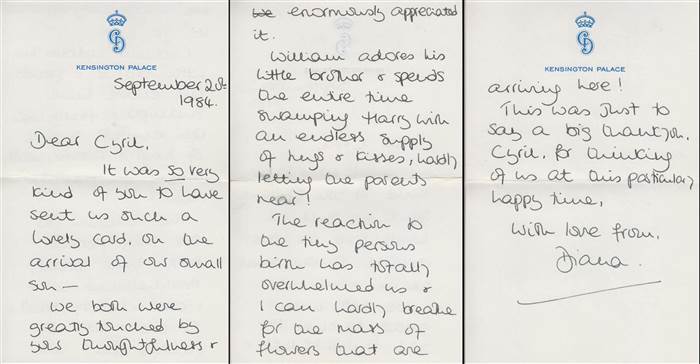 KENSINGTON PALACE
September 20th
1984.
Dear Cyril,
It was so very
kind of you to have
sent us such a
lovely card, on the
arrival of our small
son —
We both were
greatly touched by
your thoughtfulness &
enormously appreciated
it.
William adores his
little brother & spends
the entire time
swamping Harry with
an endless supply
of hugs & kisses, hardly
letting the parents
near!
The reaction to
the tiny persons
birth has totally
overwhelmed us &
I can hardly breathe
for the mass of
flowers that are
KENSINGTON PALACE
arriving here!
This was just to
say a big thankyou,
Cyril, for thinking
of us at this particularly
happy time,
with love from,
Diana.